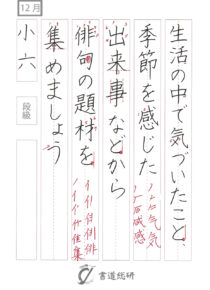 12月
小六
段級
生活の中で気づいたこと、
季節を感じた
出来事などから
俳句の題材を
集めましょう
書道総研